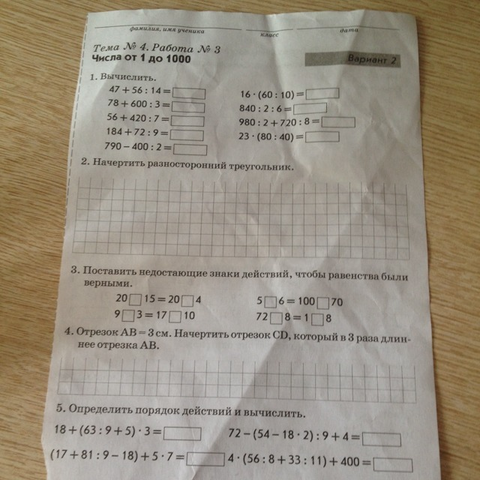 фамилия, имя ученика класс дата
Тема № 4. Работа № 3
Числа от 1 до 1000
Вариант 2
1. Вычислить.
47 + 56 : 14 = 16 · (60 : 10) =
78 + 600 : 3 = 840 : 2 : 6 =
56 + 420 : 7 = 980 : 2 + 720 : 8 =
184 + 72 : 9 = 23 · (80 : 40) =
790 – 400 : 2 =
2. Начертить разносторонний треугольник.
3. Поставить недостающие знаки действий, чтобы равенства были
верными.
20 □ 15 = 20 □ 4 5 □ 6 = 100 □ 70
9 □ 3 = 17 □ 10 72 □ 8 = 1 □ 8
4. Отрезок АВ = 3 см. Начертить отрезок CD, который в 3 раза длин-
нее отрезка АВ.
5. Определить порядок действий и вычислить.
18 + (63 : 9 + 5) · 3 = 72 – (54 – 18 · 2) : 9 + 4 =
(17 + 81 : 9 – 18) + 5 · 7 = 4 · (56 : 8 + 33 : 11) + 400 =